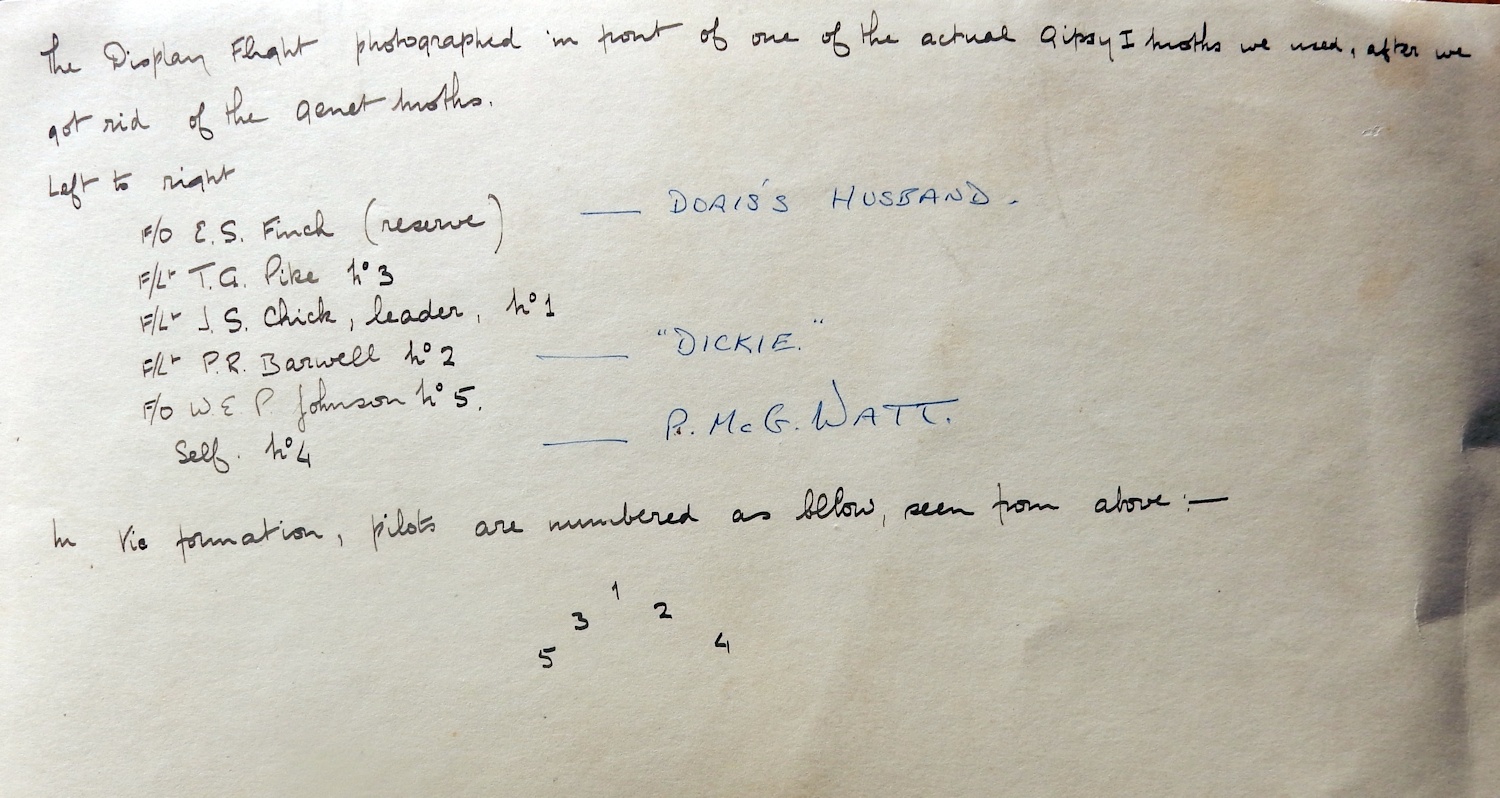 The Display Flight photographed in front of one of the actual Gipsy I Moths we used, after we
got rid of the Genet Moths.
Left to right
F/O E.S. Finch (reserve) — DORIS'S HUSBAND.
F/Lt T.G. Pike No 3
F/Lt J.S. Chick, leader, No 1
F/Lt P.R. Barwell No 2 — "DICKIE."
F/O W.E.P. Johnson No 5.
Self. No 4 — P. McG. WATT.
In Vic formation, pilots are numbered as bllow, seen from above :—
1
3 2
5 4